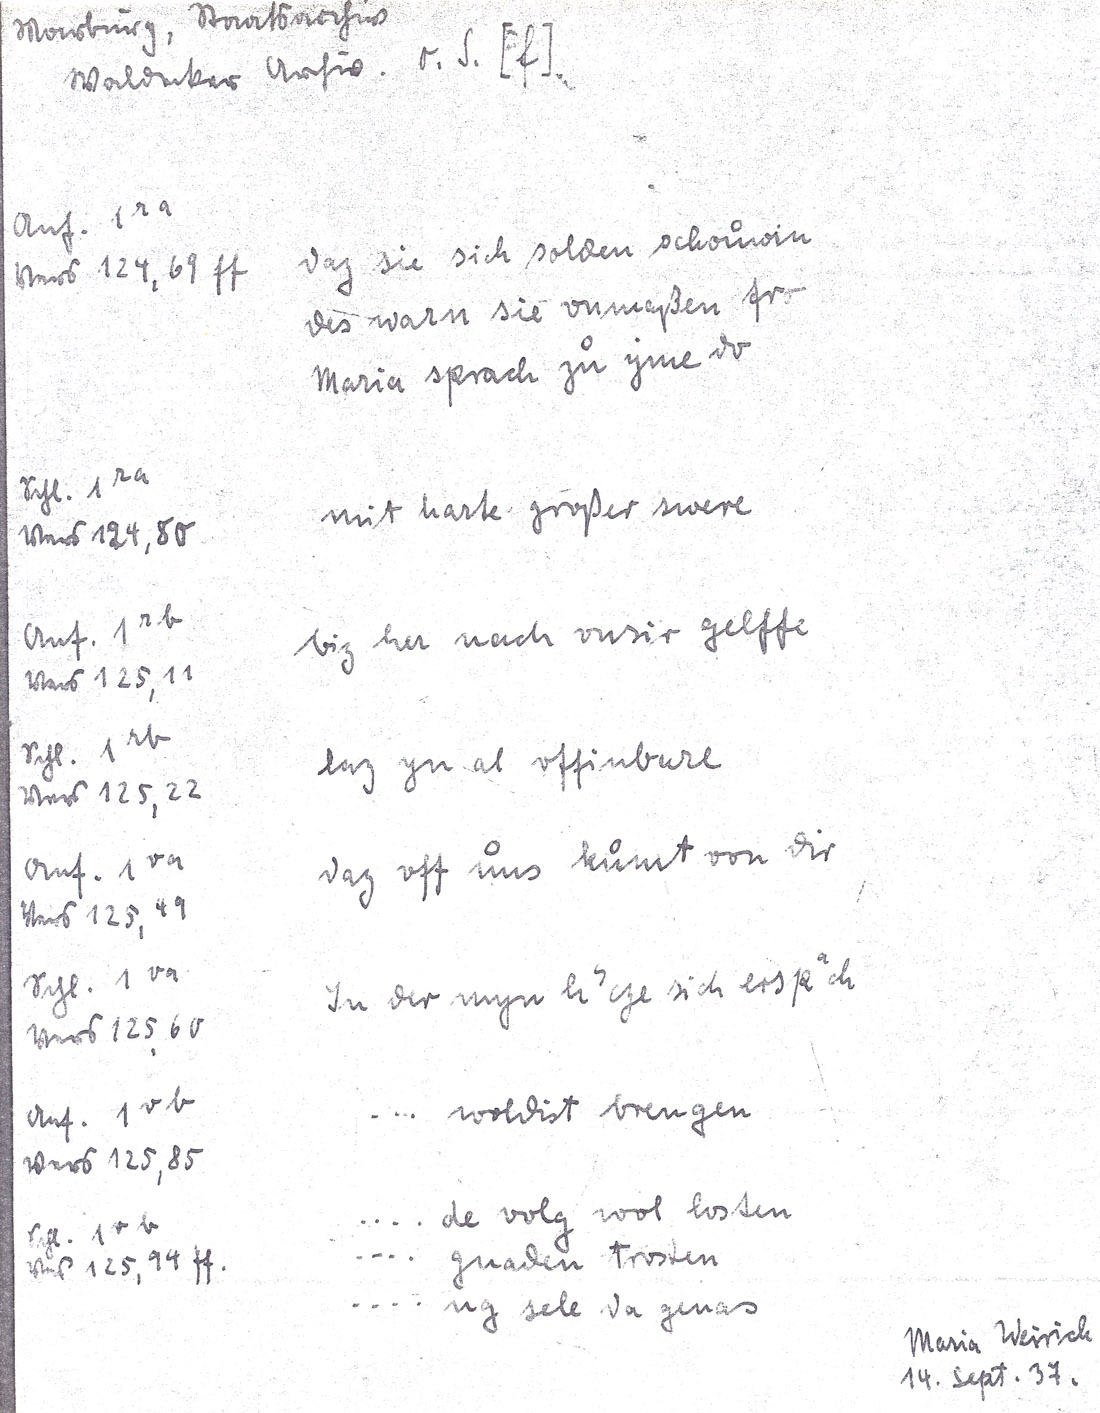 Marburg, Staatsarchiv
Waldecker Archiv. o. S. [f].
Anf. 1 ra
Vers 124,69 ff daz sie sich solden schoůwin
des warn sie vnmaßen fro
Maria sprach zů ẏme do
Schl. 1 ra
Vers 124,80 mit harte großer swere
Anf. 1 rb
Vers 125,11 biz her nach vnsir gelffe
Schl. 1 rb
Vers 125,22 laz yn al offinbare
Anf. 1 va
Vers 125,49 daz off ůns kůmt von dir
Schl. 1 va
Vers 125,60 In der myn h'cze sich erspͣch
Anf. 1 vb
Vers 125,85 .... woldist brengen
Schl. 1 vb
Vers 125,94 ff. .... de volg wol losten
.... gnaden trosten
.... ng sele da genas
Maria Weirich
14. Sept. 37.